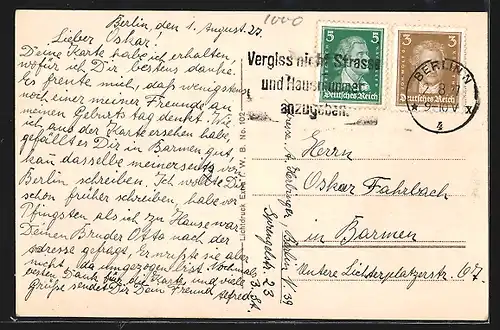 Berlin, den 1. August. 27.
Lieber Oskar!
Deine Karte habe ich erhalten,
wofür ich Dir bestens danke.
Es freute mich, daß wenigstens
noch einer meiner Freunde an
meinen Geburtstag denkt. Wie
ich aus der Karte ersehen habe,
gefällt es Dir in Barmen gut,
kann dasselbe meinerseits von
Berlin schreiben. Ich wollte Dir
schon früher schreiben, habe vor
Pfingsten, als ich zu Hause war
Deinen Bruder Otto nach der
Adresse gefragt, Er wußte sie aber
nicht, da umgezogen bist. Nochmals
besten Dank für die Karte und viele
Grüße sendet Dir Dein Freund Alfred.
1000
5 5
Deutsches Reich
3 3
Deutsches Reich
Vergiss nicht Strasse
und Hausnummer
anzugeben.
BERLIN N
8.27
X
4
Lichtdruck
W. B. No. 102
Berlin N 39
Sprengelstr. 23
3. St.
Herrn
Oskar Fahrbach
in Barmen
Untere Lichtenplatzerstr. 67.